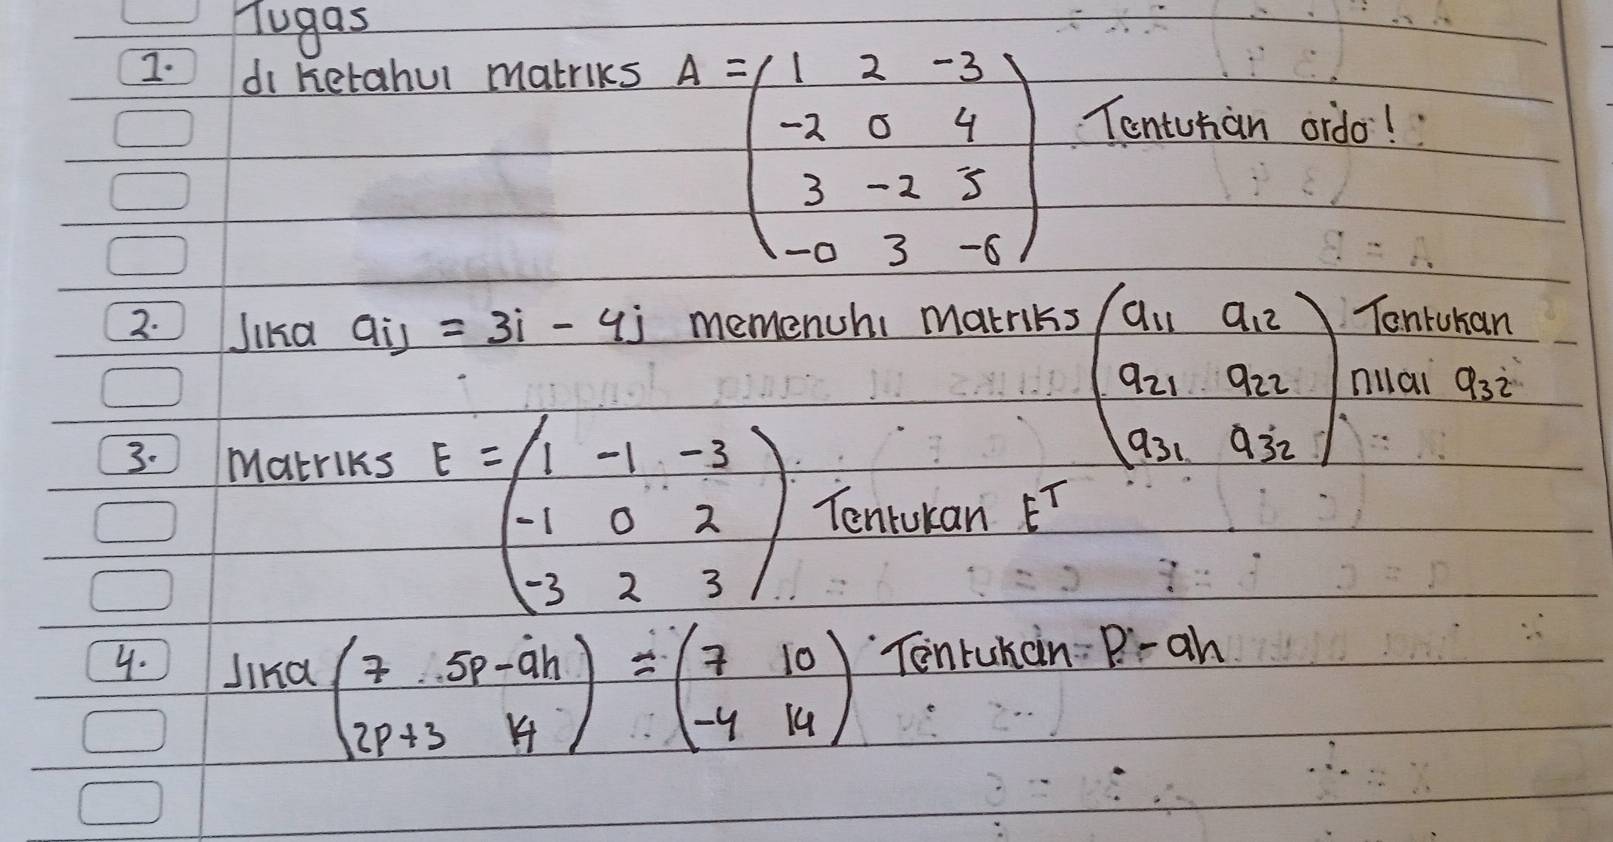 Tugas
1. di ketahui matriks A = ( 1 2 -3
-2 0 4
3 -2 5
-0 3 -6 ) Tentukan ordo!
2. Jika aij = 3i - 4j memenuhi matriks ( a11 a12
a21 a22
a31 a32 ) Tentukan
nilai a32
3. Matriks E = ( 1 -1 -3
-1 0 2
-3 2 3 ) Tentukan E^T
4. Jika ( 7 5p-ah
2p+3 14 ) = ( 7 10
-4 14 ) Tentukan P-ah